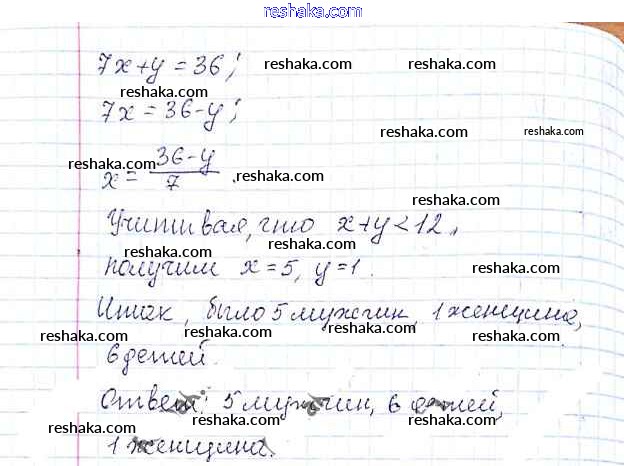 reshaka.com
7x+y=36;
reshaka.com reshaka.com
reshaka.com
7x=36-y;
reshaka.com reshaka.com
reshaka.com
x=36-y/7.
reshaka.com reshaka.com
reshaka.com
Учитивая, что x+y<12,
reshaka.com reshaka.com
получим x=5, y=1.
reshaka.com reshaka.com
Итак, было 5 мужчин, 1 женщина,
reshaka.com reshaka.com reshaka.com
6 детей.
reshaka.com reshaka.com
Ответ: 5 мужчин, 6 детей,
reshaka.com reshaka.com
1 женщина.
reshaka.com